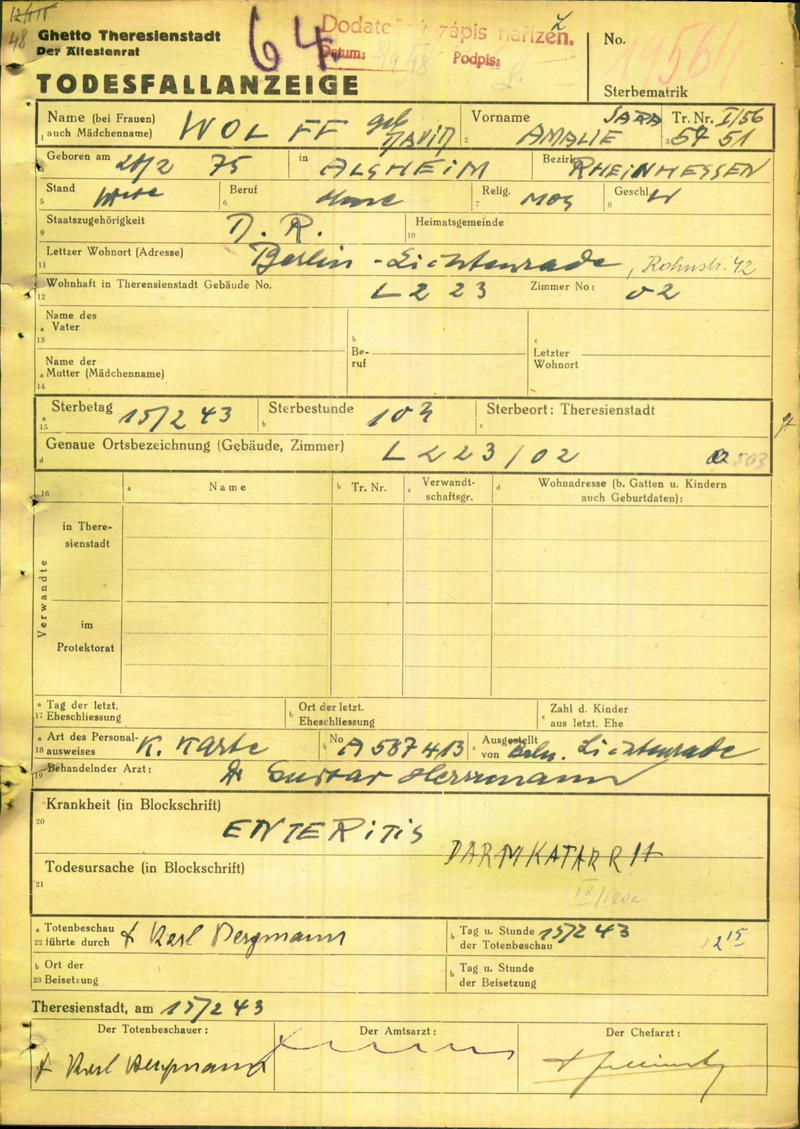 12/III
48
Ghetto Theresienstadt
Der Ältestenrat
64.
Dodatečný zápis nařízen.
Datum:
Podpis:
No.
Sterbematrik
TODESFALLANZEIGE
Name (bei Frauen) WOLFF geb Vorname SARA Tr. Nr. I/56
1 auch Mädchenname) DAVID 2 AMALIE 3 5451
Geboren am 20/2 75 in ALSHEIM Bezirk RHEINHESSEN
Stand Beruf Relig. MOS Geschl. W
5 6 7 8
Staatszugehörigkeit D. R. Heimatsgemeinde
9 10
Lettzer Wohnort (Adresse) Berlin - Lichtenrade, Rohnstr. 42
11
Wohnhaft in Theresienstadt Gebäude No. L 223 Zimmer No: 02
12
Name des
a Vater
13
b Beruf
c Letzter Wohnort
Name der
a Mutter (Mädchenname)
14
a Sterbetag 15/2 43 b Sterbestunde 10 3/4 c Sterbeort: Theresienstadt
15
d Genaue Ortsbezeichnung (Gebäude, Zimmer) L 223/02
16 a Name b Tr. Nr. c Verwandtschaftsgr. d Wohnadresse (b. Gatten u. Kindern auch Geburtdaten):
Verwandte
in Theresienstadt
im Protektorat
a Tag der letzt. b Ort der letzt. c Zahl d. Kinder
17 Eheschliessung Eheschliessung aus letzt. Ehe
a Art des Personal- K. Karte b No A 587413 c Ausgestellt
18 ausweises von Berlin. Lichtenrade
19 Behandelnder Arzt: Dr Gustav Herrmann
Krankheit (in Blockschrift)
20
ENTERITIS
DARMKATARRH
Todesursache (in Blockschrift)
21
a Totenbeschau Karl Bergmann b Tag u. Stunde 15/2 43 12 15
22 führte durch der Totenbeschau
b Ort der b Tag u. Stunde
23 Beisetzung der Beisetzung
Theresienstadt, am 15/2 43
Der Totenbeschauer: Der Amtsarzt: Der Chefarzt:
Karl Bergmann